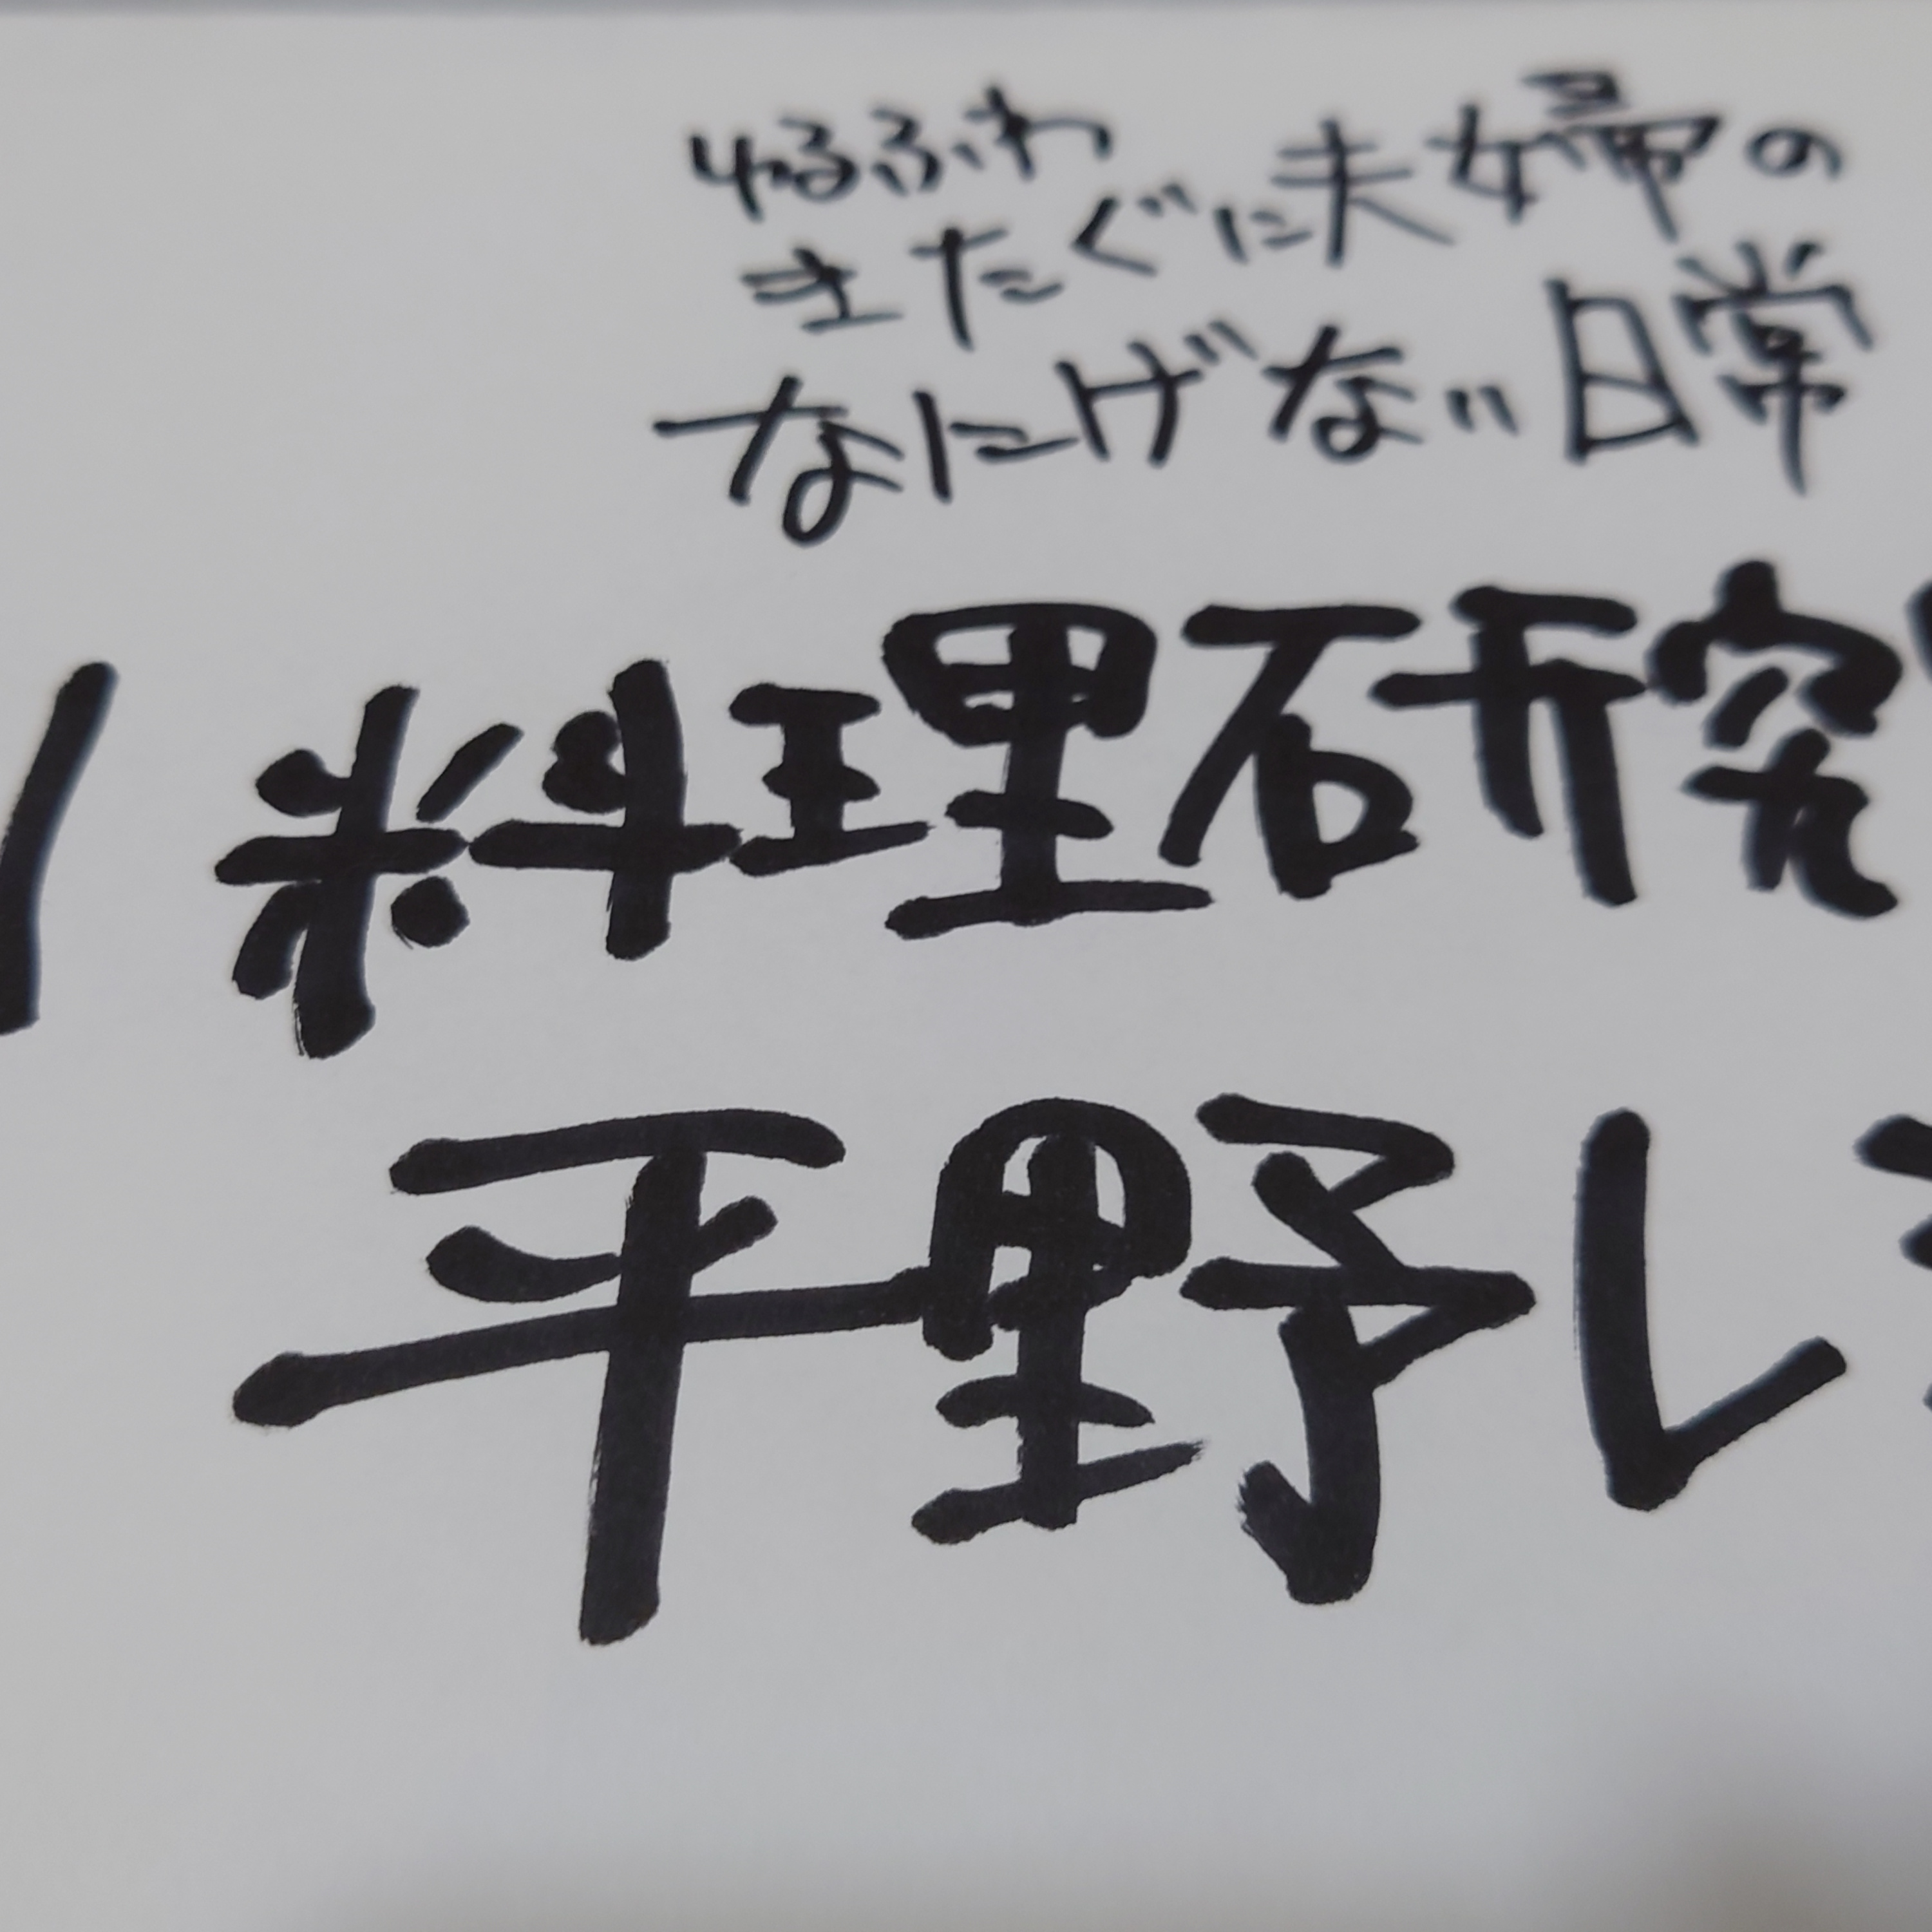 ゆるふわ
きたぐに夫婦の
なにげない日常
料理研究
平野レ